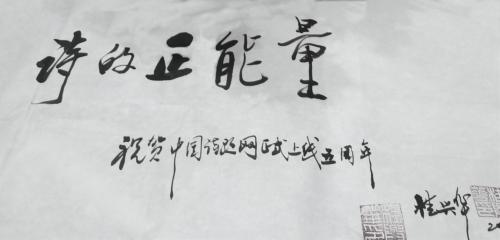 诗的正能量
祝贺中国诗歌网正式上线五周年
桂兴华